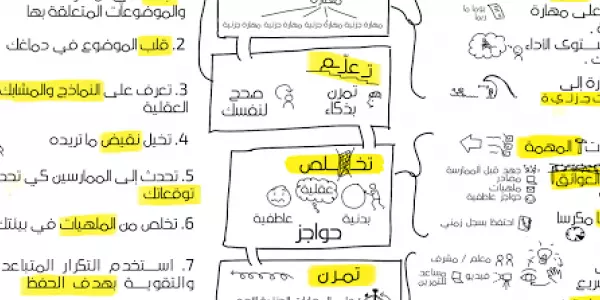 على مهارة
يوما ما
ربما
مستوى الأداء
المهمة
العوائق
جهد قبل الممارسة
مصادر
ملهيات
حواجز عاطفية
احتفظ بسجل زمني
معلم / مشرف
فيديو
مساعد للتمرين
مهارة جزئية مهارة جزئية مهارة جزئية مهارة جزئية
تعلّم
تمرن بذكاء
صحح لنفسك
تخلص
عقلية
بدنية
عاطفية
حواجز
تمرن
والموضوعات المتعلقة بها
2. قلب الموضوع في دماغك
3. تعرف على النماذج والمشابك
العقلية
4. تخيل نقيض ما تريده
5. تحدث إلى الممارسين كي تحدد
توقعاتك
6. تخلص من الملهيات في بيئتك
7. استخدم التكرار المتباعد
والتقوية بهدف الحفظ